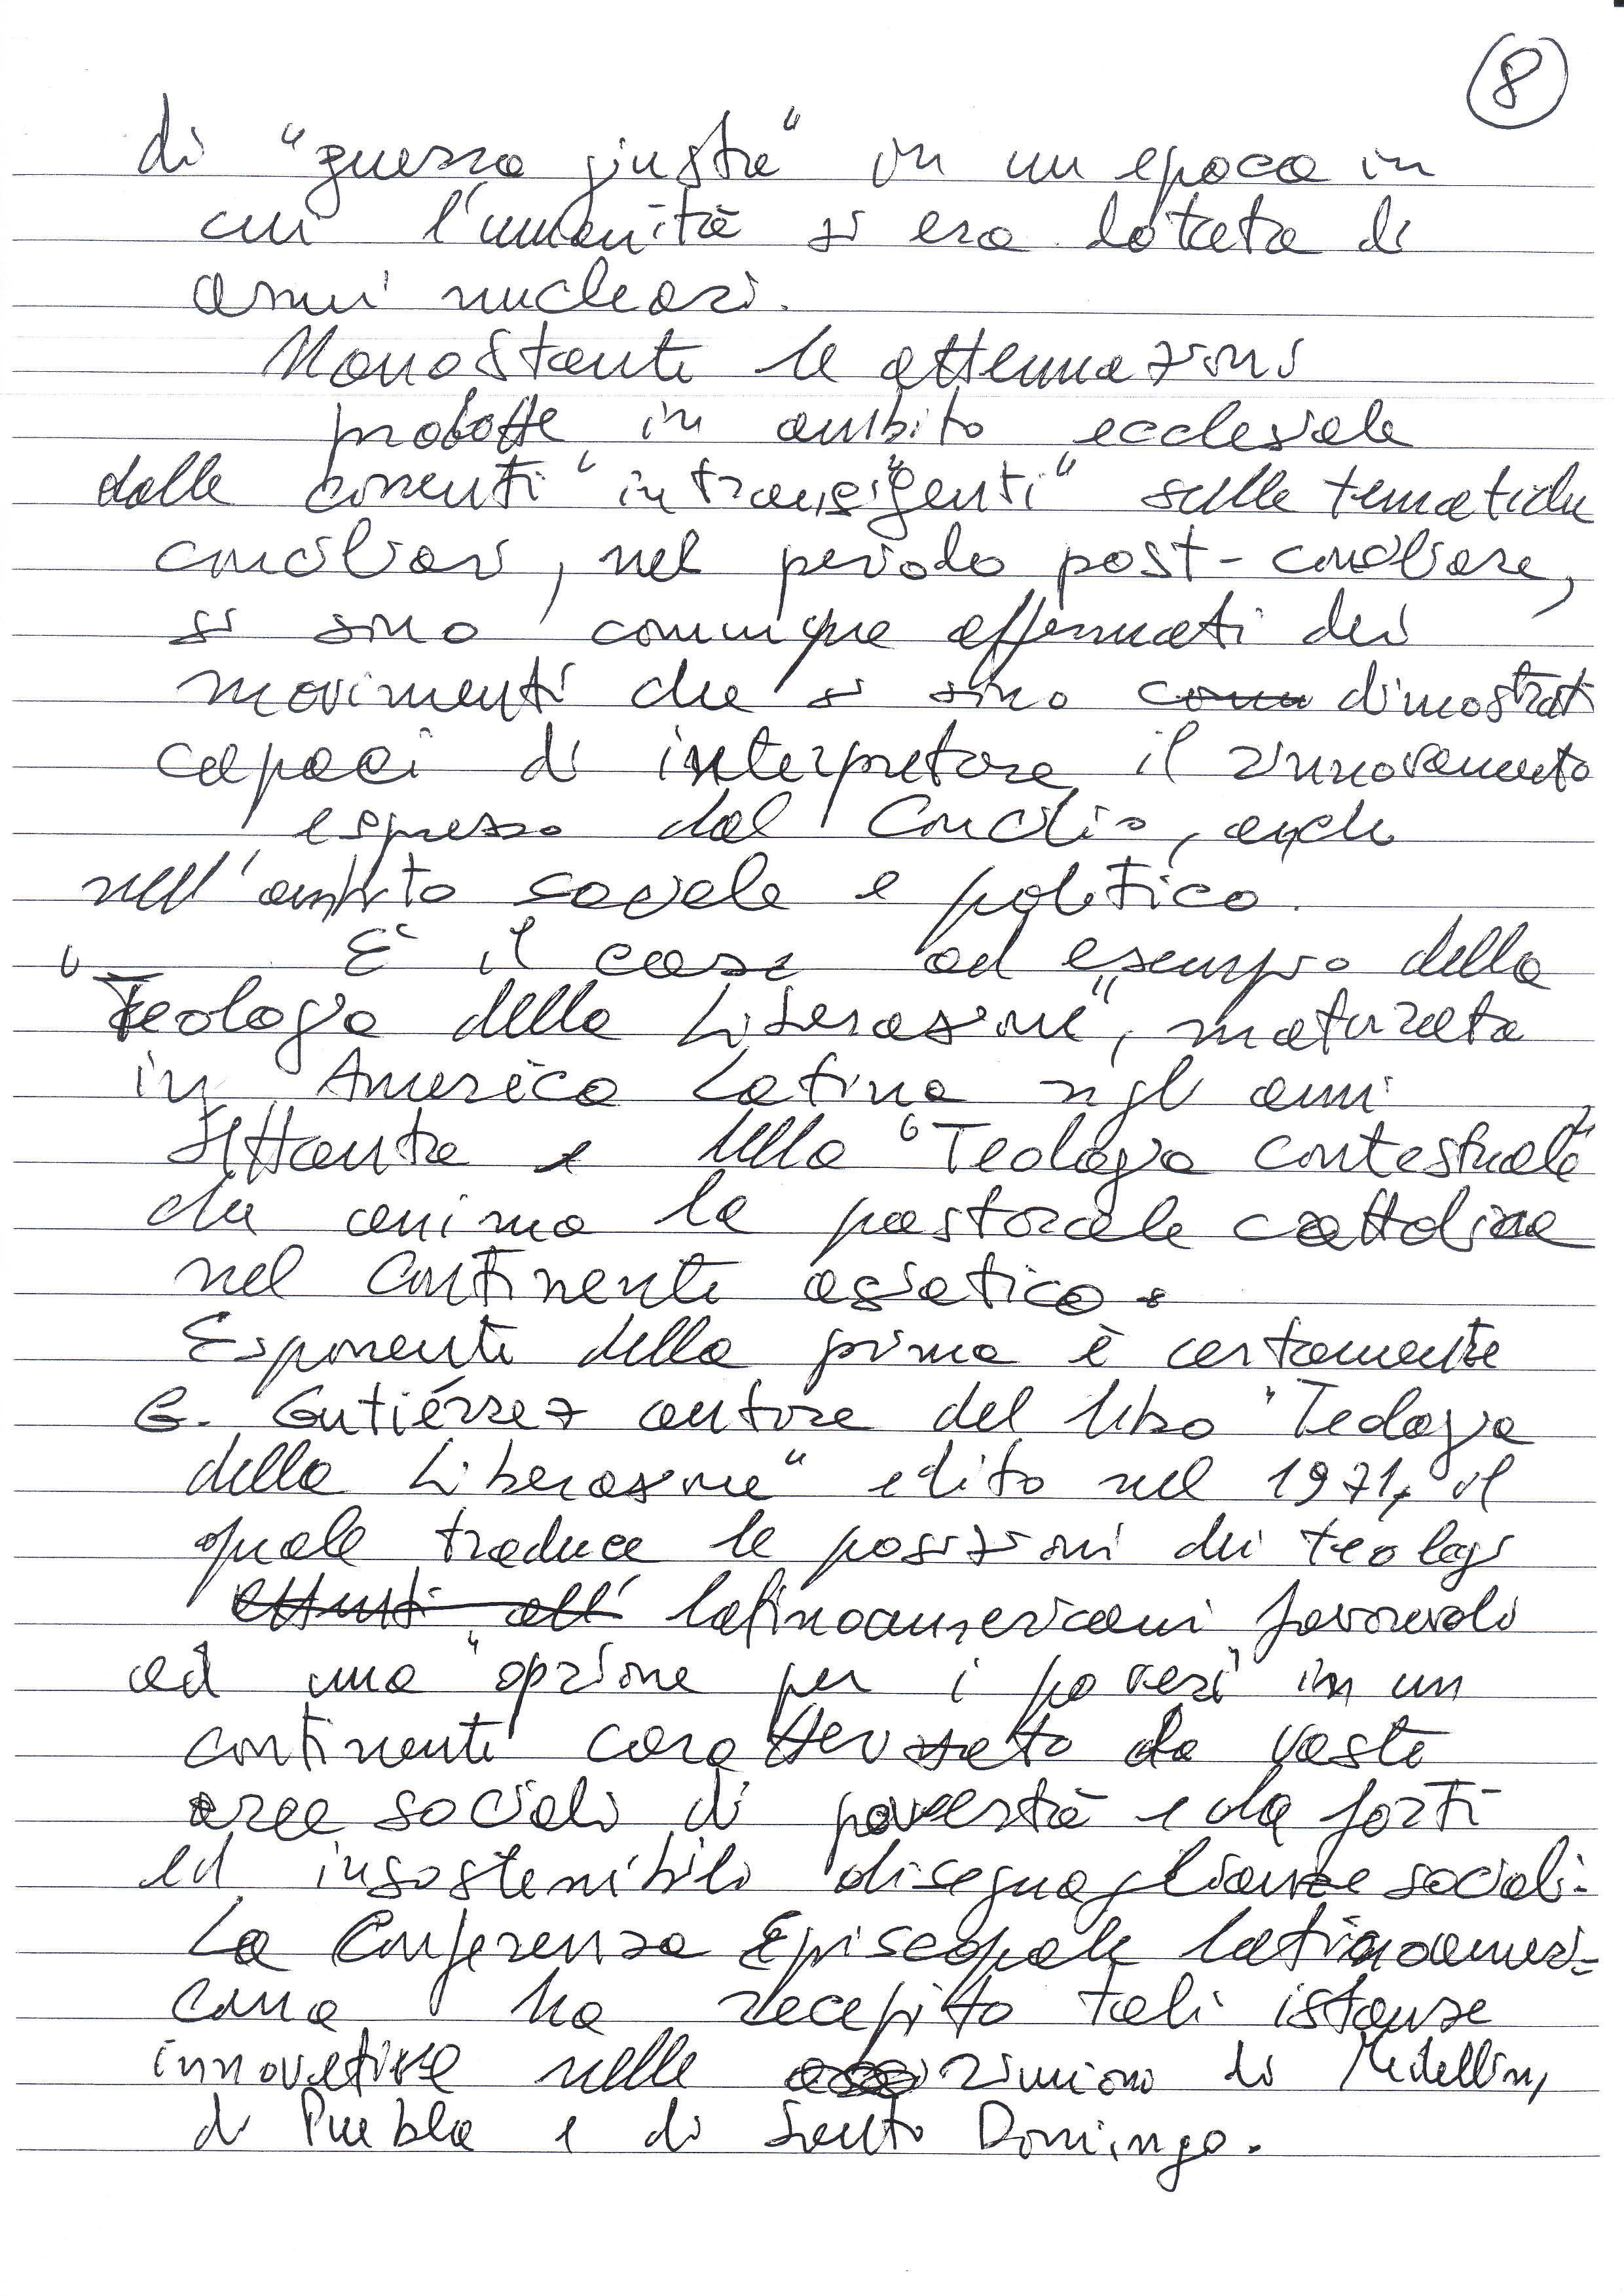 8
di "guerra giusta" in un epoca in
cui l'umanità si era dotata di
armi nucleari.
Nonostante le attenuazioni
prodotte in ambito ecclesiale
dalle correnti "intransigenti" sulle tematiche
conciliari, nel periodo post-conciliare,
si sono comunque affermati dei
movimenti che si sono com dimostrati
capaci di interpretare il rinnovamento
espresso dal Concilio, anche
nell'ambito sociale e politico.
E' il caso ad esempio della
"Teologia della Liberazione", maturata
in America Latina negli anni
Settanta e della "Teologia contestuale"
che anima la pastorale cattolica
nel continente asiatico.
Esponente della prima è certamente
G. Gutiérrez autore del libro "Teologia
della Liberazione" edito nel 1971, il
quale traduce le posizioni dei teologi
all' latinoamericani favorevoli
ad una "opzione per i poveri" in un
continente caratterizzato da vaste
aree sociali di povertà e da forti
ed insostenibili diseguaglianze sociali.
La Conferenza Episcopale latinoameri=
cana ha recepito tali istanze
innovative nelle riunioni di Medellin,
di Puebla e di Santo Domingo.